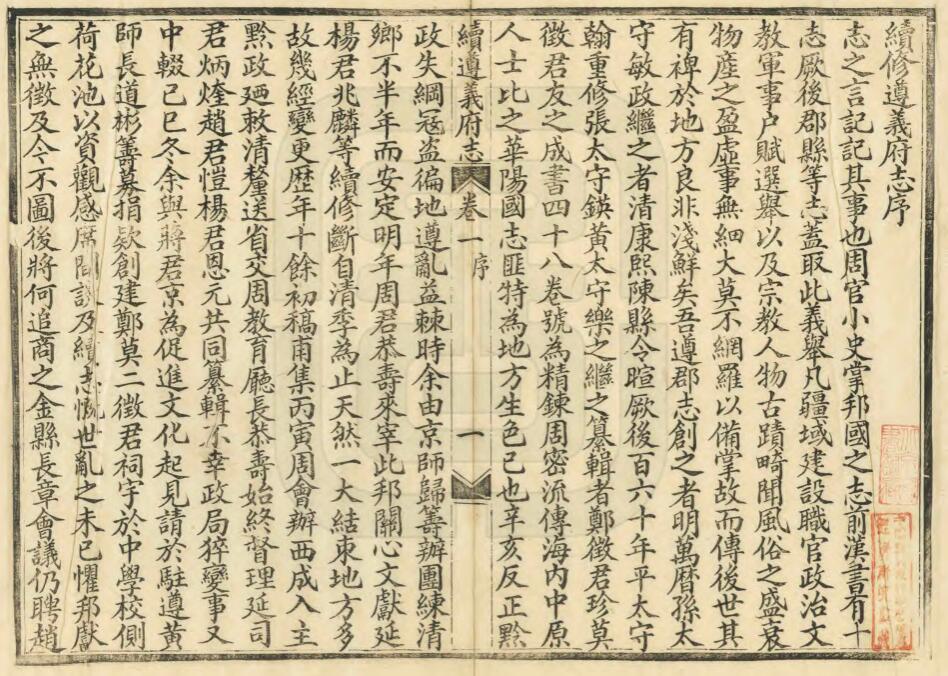 續修遵義府志序
志之言記記其事也周官小史掌邦國之志前漢書有十
志厥後郡縣等志蓋取此義舉凡疆域建設職官政治文
教軍事户賦選舉以及宗教人物古蹟畸聞風俗之盛衰
物産之盈虛事無細大莫不網羅以備掌故而傳後世其
有裨於地方良非淺鮮矣吾遵郡志創之者明萬曆孫太
守敏政繼之者清康熙陳縣令暄厥後百六十年平太守
翰重修張太守鍈黄太守樂之繼之纂輯者鄭徵君珍莫
徵君友之成書四十八卷號為精鍊周密流傳海内中原
人士比之華陽國志匪特為地方生色已也辛亥反正黔
續遵義府志 卷一 序 一
政失綱冦盗徧地遵亂益棘時余由京師歸籌辦團練清
鄉不半年而安定明年周君恭壽來宰此邦關心文獻延
楊君兆麟等續修斷自清季為止天然一大結束地方多
故幾經變更歷年十餘初稿甫集丙寅周會辦西成入主
黔政廼敕清釐送省交周教育廳長恭壽始終督理延司
君炳煃趙君愷楊君恩元共同纂輯不幸政局猝變事又
中輟已巳冬余與蔣君京為促進文化起見請於駐遵黄
師長道彬籌募捐欵創建鄭莫二徵君祠宇於中學校側
荷花池以資觀感席間談及續志慨世亂之未已懼邦獻
之無徵及今不圖後將何追商之金縣長章會議仍聘趙